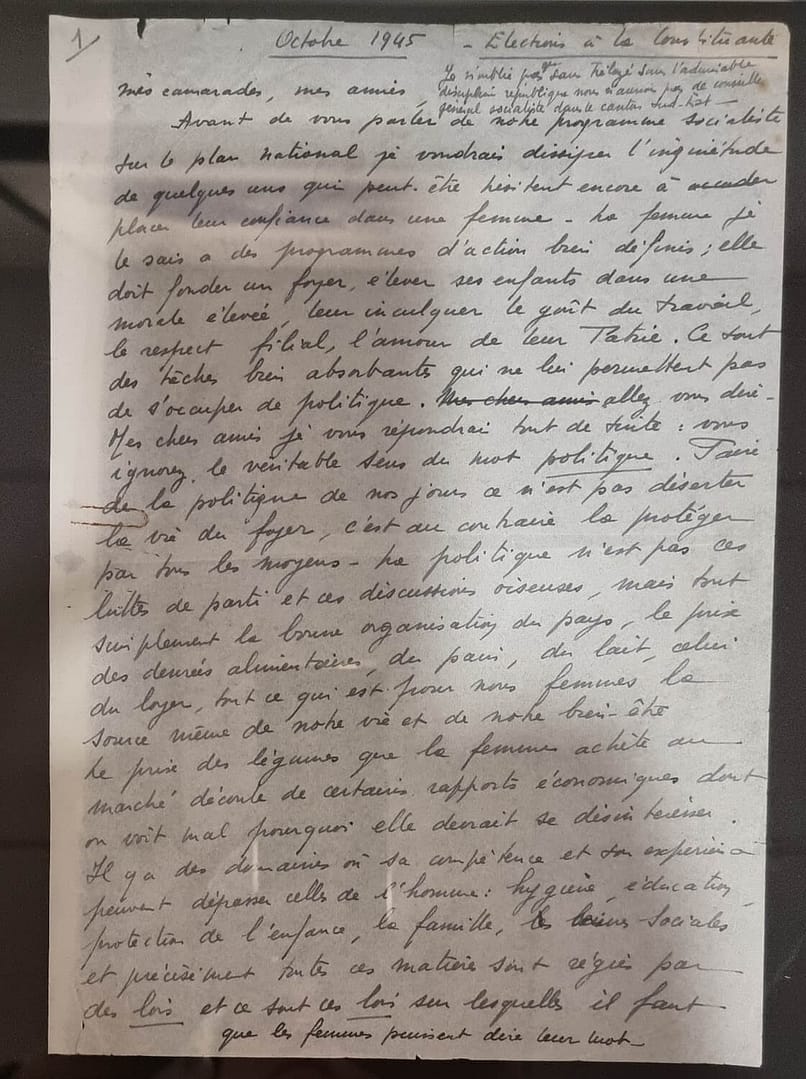 1
Octobre 1945 - Elections à la Constituante
Je n'oublie pas que sans Trélazé sans l'admirable
mes camarades, mes amies,
discipline républicaine nous n'aurions pas de conseiller
général socialiste dans le canton Sud-Est -
Avant de vous parler de notre programme socialiste
sur le plan national je voudrais dissiper l'inquiétude
de quelques uns qui peut-être hésitent encore à accorder
placer leur confiance dans une femme - La femme je
le sais a des programmes d'action bien définis ; elle
doit fonder un foyer, élever ses enfants dans une
morale élevée, leur inculquer le goût du travail,
le respect filial, l'amour de leur Patrie. Ce sont
des tâches bien absorbantes qui ne lui permettent pas
de s'occuper de politique. Mes chers amis allez vous dire -
Mes chers amis je vous répondrai tout de suite : vous
ignorez le véritable sens du mot politique. Faire
de la politique de nos jours ce n'est pas déserter
la vie du foyer, c'est au contraire la protéger
par tous les moyens - La politique n'est pas ces
luttes de parti et ces discussions oiseuses, mais tout
simplement la bonne organisation du pays, le prix
des denrées alimentaires, du pain, du lait, celui
du loyer, tout ce qui est pour nous femmes la
source même de notre vie et de notre bien-être
Le prix des légumes que la femme achète au
marché découle de certains rapports économiques dont
on voit mal pourquoi elle devrait se désintéresser.
Il y a des domaines où sa compétence et son expérience
peuvent dépasser celles de l'homme : hygiène, éducation,
protection de l'enfance, la famille, les sociales
et précisément toutes ces matières sont régies par
des lois et ce sont ces lois sur lesquelles il faut
que les femmes puissent dire leur mot -